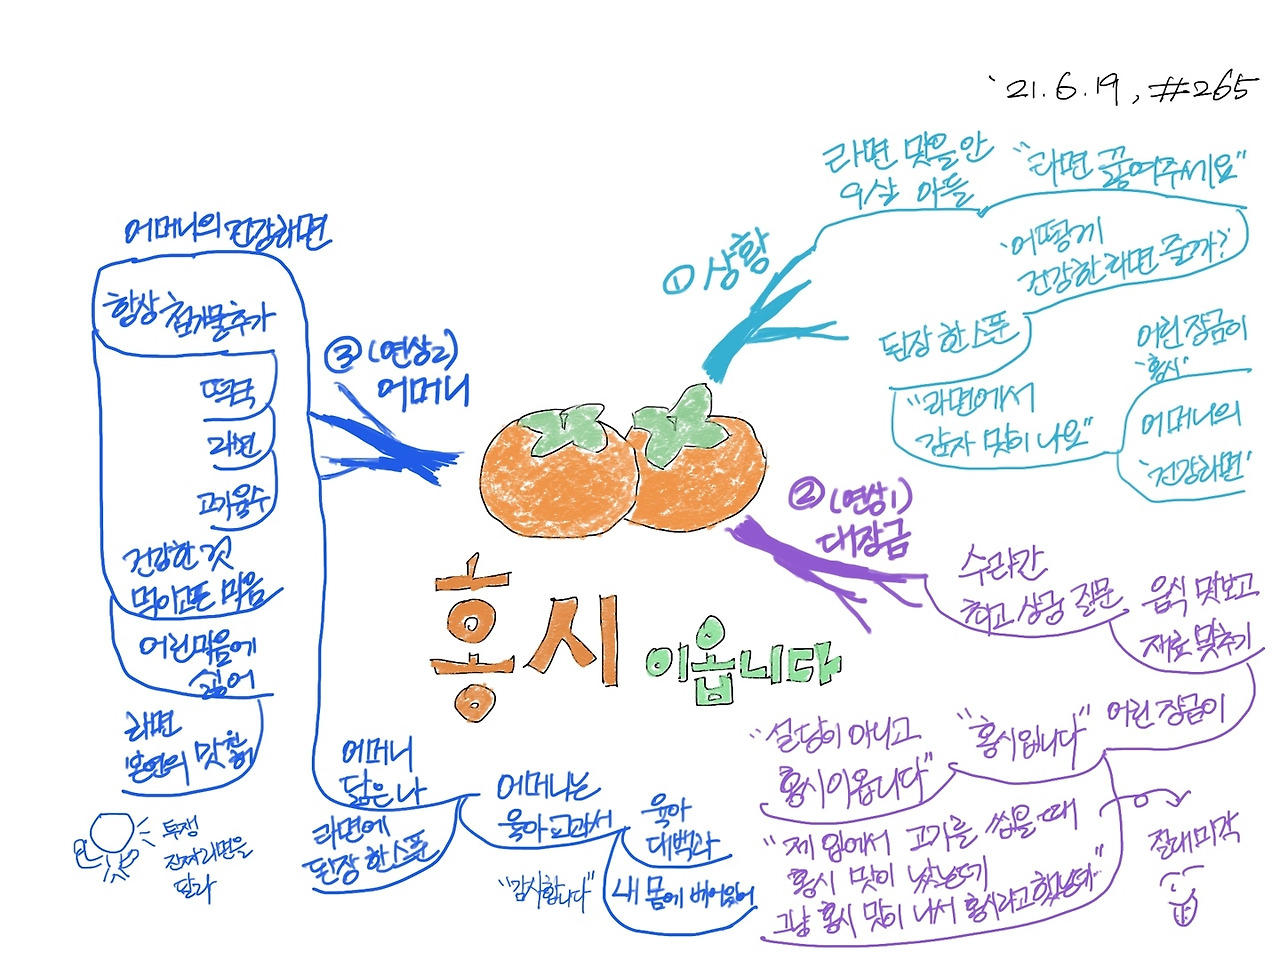 '21.6.19, #265
홍시
이옵니다
① 상황
라면 맛을 안
9살 아들
"라면 끓여주세요"
'어떻게
건강한 라면 줄까?'
된장 한 스푼
"라면에서
감자 맛이 나요"
어린 장금이
'홍시'
어머니의
'건강라면'
② (연상1)
대장금
수라간
최고 상궁 질문
음식 맛보고
재료 맞추기
어린 장금이
"홍시입니다"
"설탕이 아니고
홍시이옵니다"
"제 입에서 고기를 씹을 때
홍시 맛이 났는데
그냥 홍시 맛이 나서 홍시라고 했는데"
절대미각
③ (연상2)
어머니
어머니의 건강라면
항상 첨가물 추가
떡국
라면
고기육수
건강한 것
먹이고픈 마음
어린마음에
싫어
라면
본연의 맛
투쟁
진짜 라면을
달라
어머니
닮은 나
라면에
된장 한 스푼
어머니는
육아 교과서
육아
대백과
"감사합니다"
내 몸에 베어있어